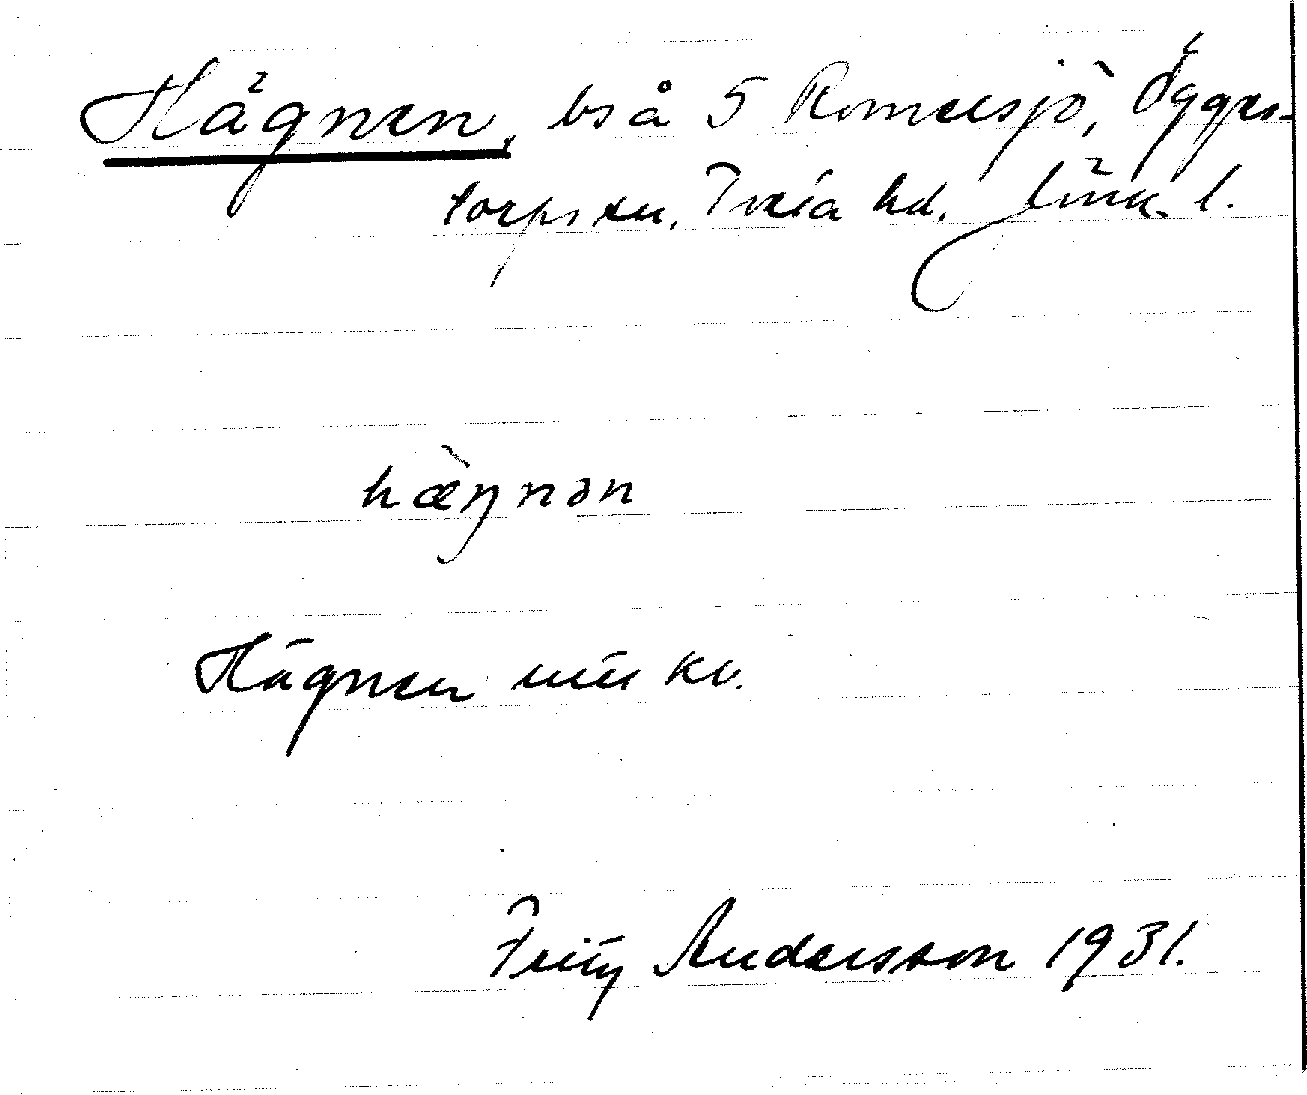 Hägnen, bs å 5 Romelsjö, Öggestorps sn, Tveta hd. Jönk. l.
hæ̀ŋnən
Hägnen min kv.
Fritz Andersson 1931.